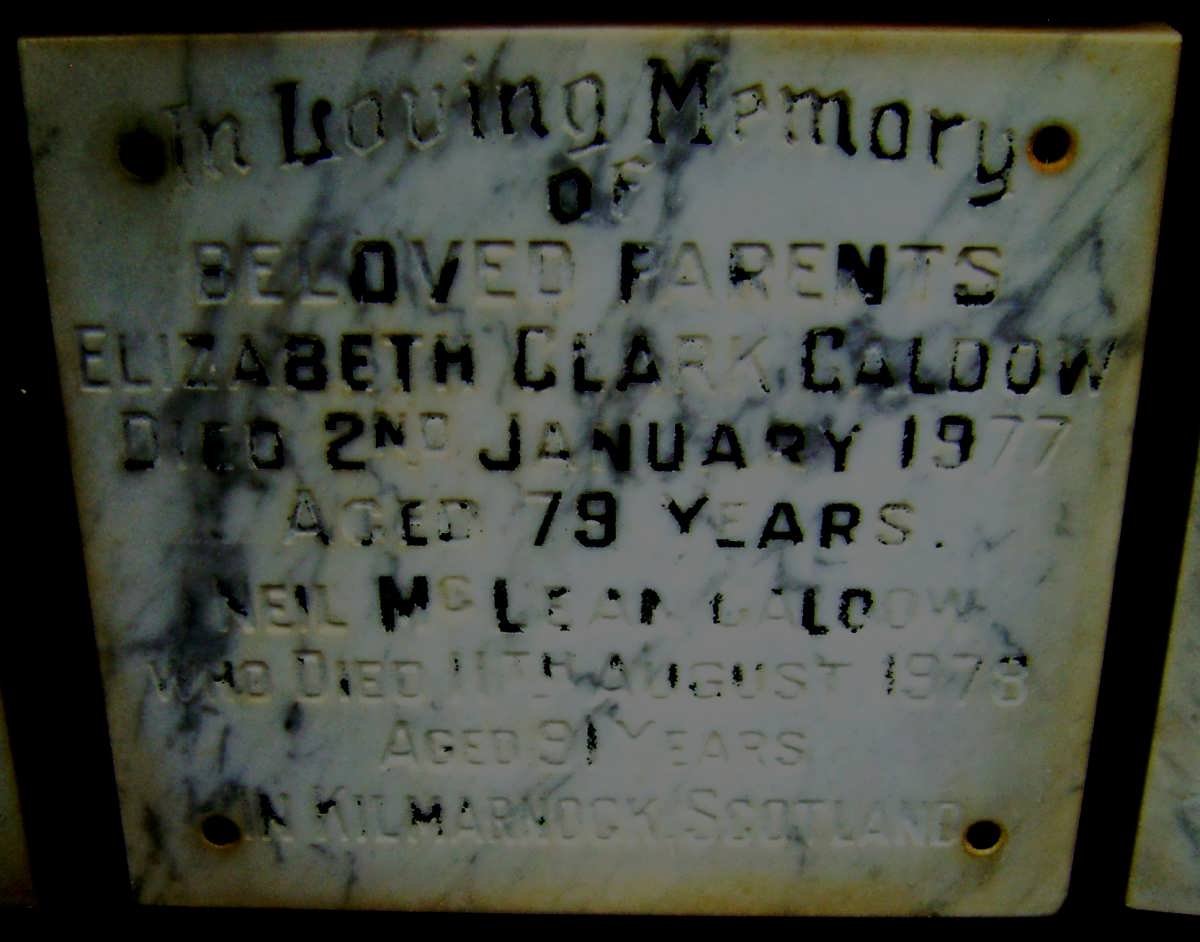 In Loving Memory
OF
BELOVED PARENTS
ELIZABETH CLARK CALDOW
DIED 2ND JANUARY 1977
AGED 79 YEARS.
NEIL MCLEAN CALDOW
WHO DIED 11TH AUGUST 1978
AGED 91 YEARS
IN KILMARNOCK, SCOTLAND